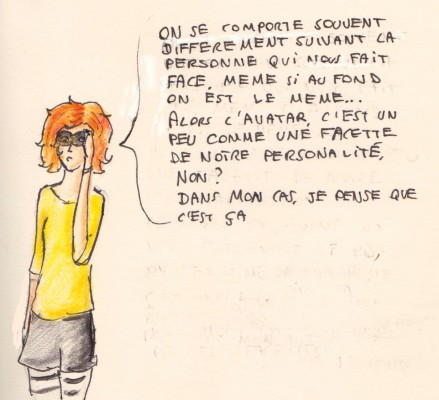 ON SE COMPORTE SOUVENT
DIFFEREMENT SUIVANT LA
PERSONNE QUI NOUS FAIT
FACE, MEME SI AU FOND
ON EST LE MEME...
ALORS L'AVATAR, C'EST UN
PEU COMME UNE FACETTE
DE NOTRE PERSONALITÉ,
NON?
DANS MON CAS, JE PENSE QUE
C'EST ÇA